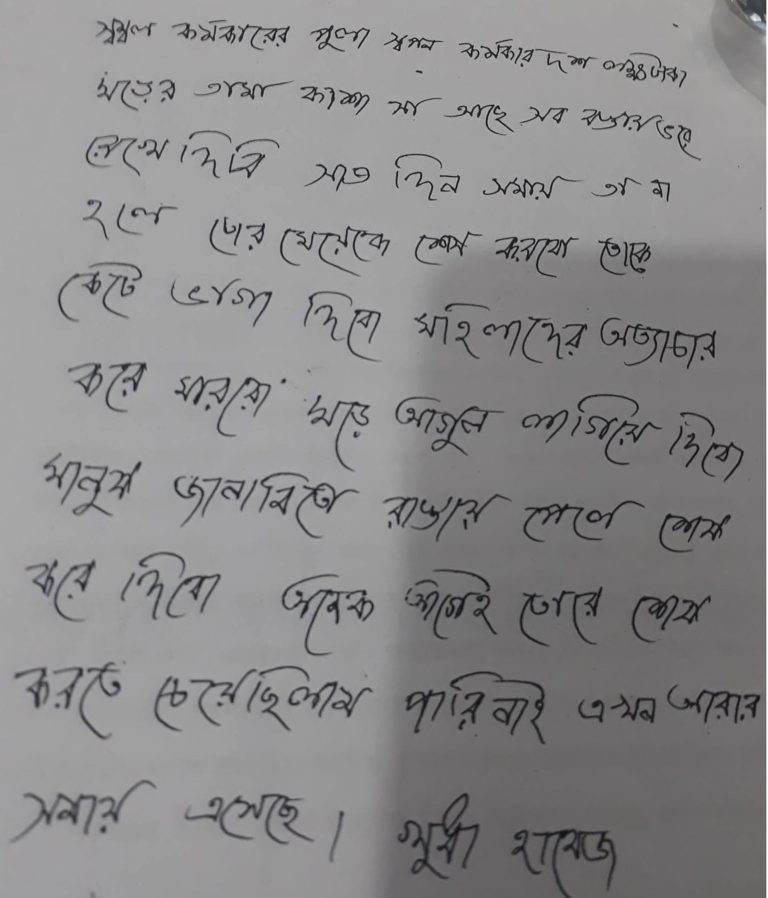 সম্বল কর্মকারের পুলা স্বপন কর্মকার দশ লক্ষ টাকা
ঘড়ের তামা কাশা যা আছে সব বস্তায় ভরে
রেখে দিবি সাত দিন সময় তা না
হলে তোর মেয়েকে শেষ করবো তোকে
কেটে ভাগা দিবো মহিলাদের অত্যাচার
করে মারবো ঘড়ে আগুন লাগিয়ে দিবো
মানুষ জানাবিতো রাস্তায় পেলে শেষ
করে দিবো অনেক আগেই তোরে শেষ
করতে চেয়েছিলাম পারিনাই এখন আবার
সময় এসেছে।